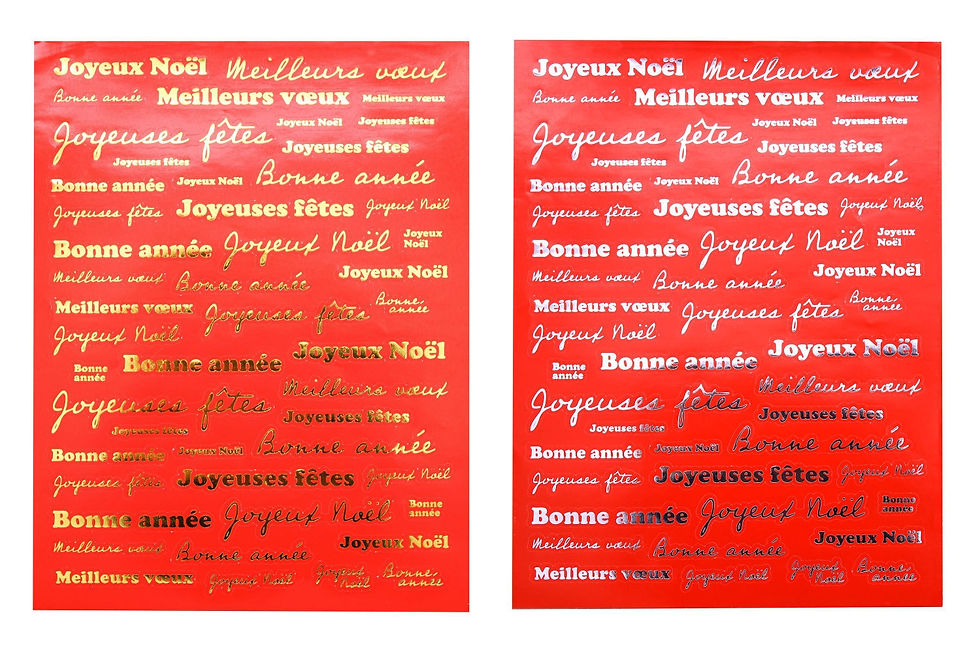 Joyeux Noël Meilleurs vœux
Bonne année Meilleurs vœux Meilleurs vœux
Joyeuses fêtes Joyeux Noël Joyeuses fêtes
Joyeuses fêtes
Joyeuses fêtes
Bonne année Joyeux Noël Bonne année
Joyeuses fêtes Joyeuses fêtes Joyeux Noël
Bonne année Joyeux Noël Joyeux
Noël
Meilleurs vœux Bonne année Joyeux Noël
Meilleurs vœux Joyeuses fêtes Bonne
année
Joyeux Noël
Bonne
année
Bonne année Joyeux Noël
Joyeuses fêtes Meilleurs vœux
Joyeuses fêtes
Joyeuses fêtes
Bonne année Joyeux Noël Bonne année
Joyeuses fêtes Joyeuses fêtes Joyeux Noël
Bonne année Joyeux Noël Bonne
année
Meilleurs vœux Bonne année Joyeux Noël
Meilleurs vœux Joyeux Noël Joyeux
Noël
Bonne
année
Joyeux Noël Meilleurs vœux
Bonne année Meilleurs vœux Meilleurs vœux
Joyeuses fêtes Joyeux Noël Joyeuses fêtes
Joyeuses fêtes
Joyeuses fêtes
Bonne année Joyeux Noël Bonne année
Joyeuses fêtes Joyeuses fêtes Joyeux Noël
Bonne année Joyeux Noël Joyeux
Noël
Meilleurs vœux Bonne année Joyeux Noël
Meilleurs vœux Joyeuses fêtes Bonne
année
Joyeux Noël
Bonne
année
Bonne année Joyeux Noël
Joyeuses fêtes Meilleurs vœux
Joyeuses fêtes
Joyeuses fêtes
Bonne année Joyeux Noël Bonne année
Joyeuses fêtes Joyeuses fêtes Joyeux Noël
Bonne année Joyeux Noël Bonne
année
Meilleurs vœux Bonne année Joyeux Noël
Meilleurs vœux Joyeux Noël Joyeux
Noël
Bonne
année